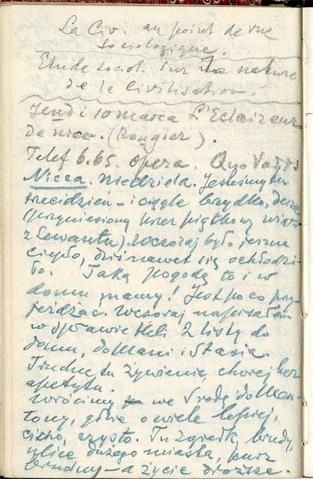 La Civ. au point de vue
Sociologique.
Etude sociol. sur la nature
de la Civilisation.
Jeudi 10 marca L'Eclaireur
de Nice. (Rougier).
Telef 6.65. Opera. Quo Vadis
Nicea. Niedziela. Jesteśmy tu
trzeci dzień – i ciągle brzydko, deszcz
(przyniesiony przez piątkowy wiatr
z Lewantu). Wczoraj było jeszcze
ciepło, dziś nawet się ochłodzi-
ło. Taką pogodę to i w
domu mamy! Jest po co przy-
jeżdżać. Wczoraj napisałam
w sprawie Heli 2 listy do
domu, do Mani i Stasia.
Trudno tu żywienie chorej bez
apetytu.
Wrócimy we środę do Men-
tony, gdzie o wiele lepiej,
cicho, czysto. Tu zgiełk, brudy,
ulice dużego miasta, kurz
brudny – a życie droższe.